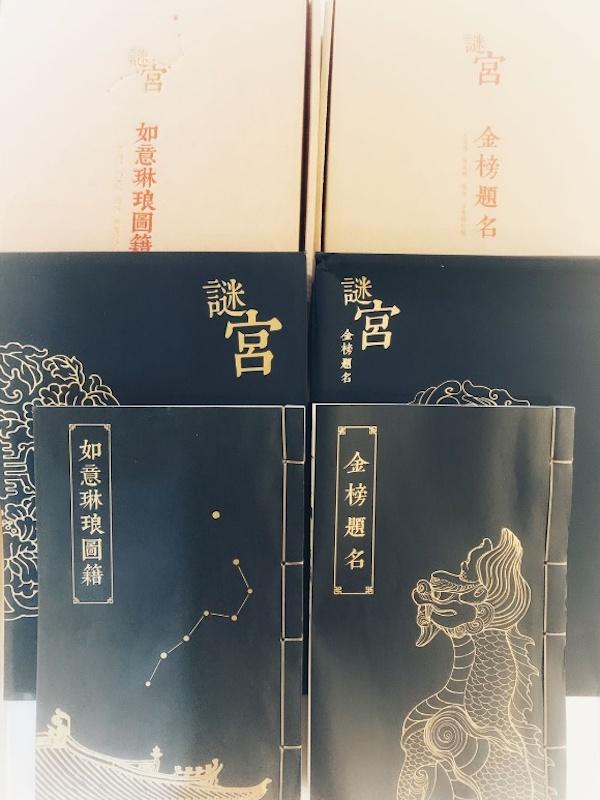 謎宮
如意琳琅圖籍
謎宮
金榜題名
謎宮
謎宮
金榜題名
如意琳琅圖籍
金榜題名